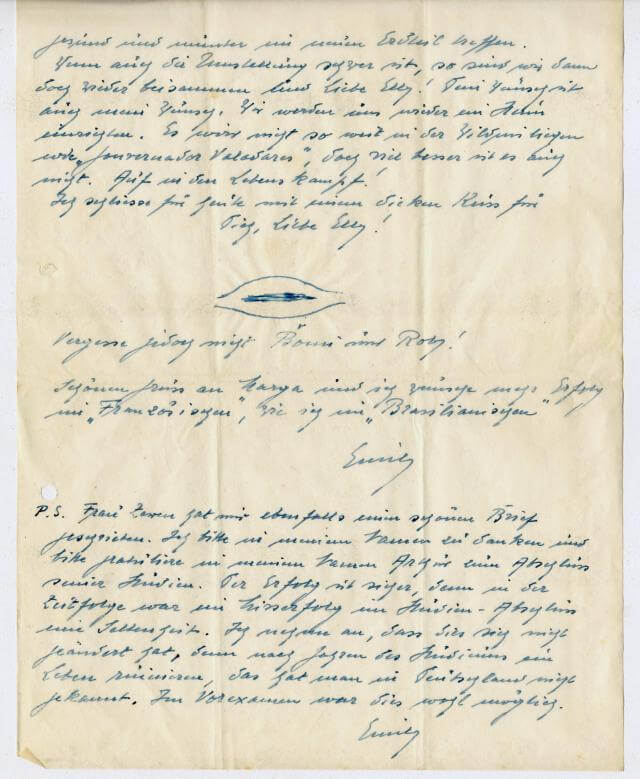 gesund und munter im neuen Erdteil treffen.
Wenn auch die Umstellung schwer ist, so sind wir dann
doch wieder beisammen und liebe Elly! Dein Wunsch ist
auch mein Wunsch. Wir werden uns wieder ein Heim
einrichten. Es wird nicht so weit in der Wildnis liegen
wie „Gouvernador Valadares", doch viel besser ist es auch
nicht. Auf in den Lebenskampf!
Ich schliesse für heute mit einem dicken Kuss für
Dich, liebe Elly!
Vergesse jedoch nicht und Roby!
Schönen Gruss an Marga und ich wünsche mehr Erfolg
im „Französischen", wie ich im „Brasilianischen"
P.S. Frau hat mir ebenfalls einen schönen Brief
geschrieben. Ich bitte in meinem Namen zu danken und
bitte gratuliere in meinem Namen zum Abschluss
seiner Studien. Der Erfolg ist sicher, denn in der
war ein Misserfolg im Studien-Abschluss
eine Seltenheit. Ich nehme an, dass dies sich nicht
geändert hat, denn nach Jahren des Studiums ein
Leben ruinieren, das hat man in Deutschland nicht
gekannt. Im Vorexamen war dies wohl möglich.